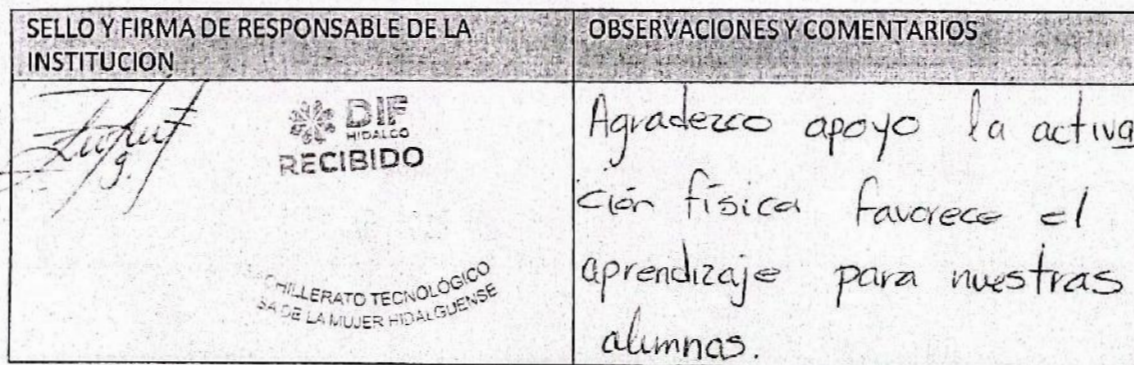 SELLO Y FIRMA DE RESPONSABLE DE LA
INSTITUCION
OBSERVACIONES Y COMENTARIOS
DIF
HIDALGO
RECIBIDO
CHILLERATO TECNOLÓGICO
SA DE LA MUJER HIDALGUENSE
Agradezco apoyo la activa
ción física favorece el
aprendizaje para nuestras
alumnas.